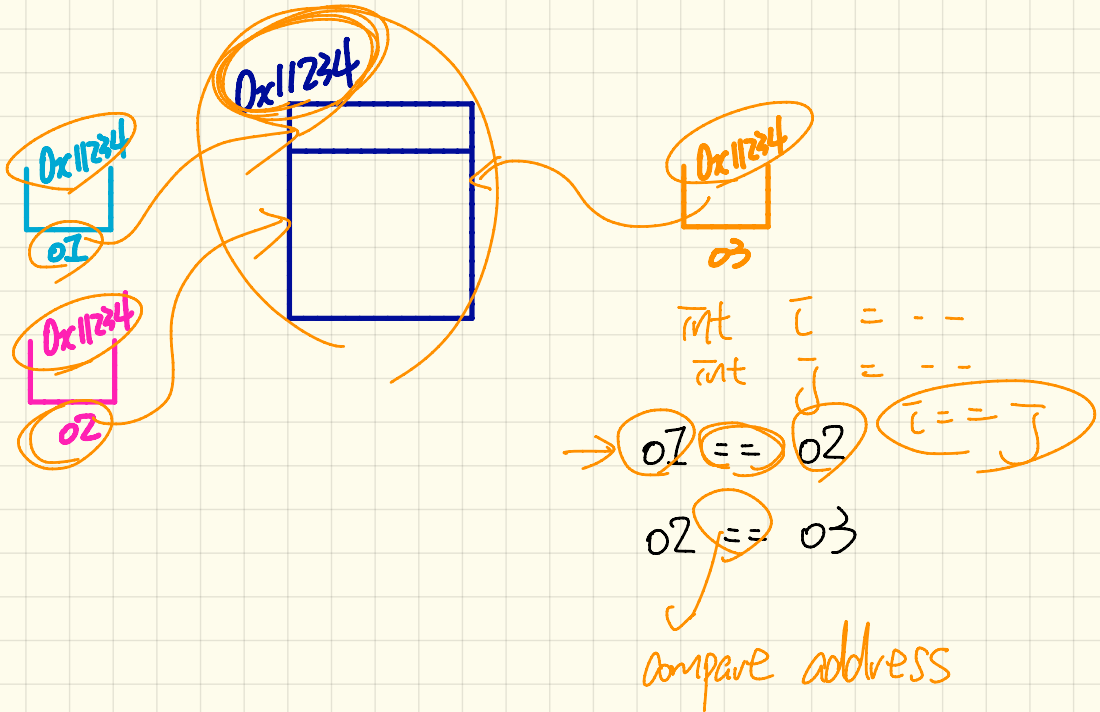 0x11234
0x11234
o1
0x11234
o2
0x11234
o3
int i = - -
int j = - -
o1 == o2
i == j
o2 == o3
compare address